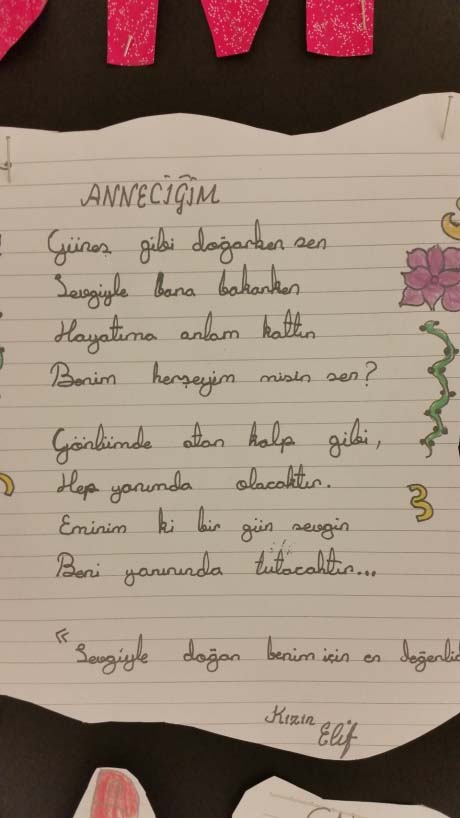 ANNECİĞİM
Güneş gibi doğarken sen
Sevgiyle bana bakarken
Hayatıma anlam kattın
Benim herşeyim misin sen?
Gönlümde atan kalp gibi,
Hep yanımda olacaktır.
Eminim ki bir gün sevgin
Beni yanınında tutacaktır...
"Sevgiyle doğan benim için en değerlid
Kızın
Elif